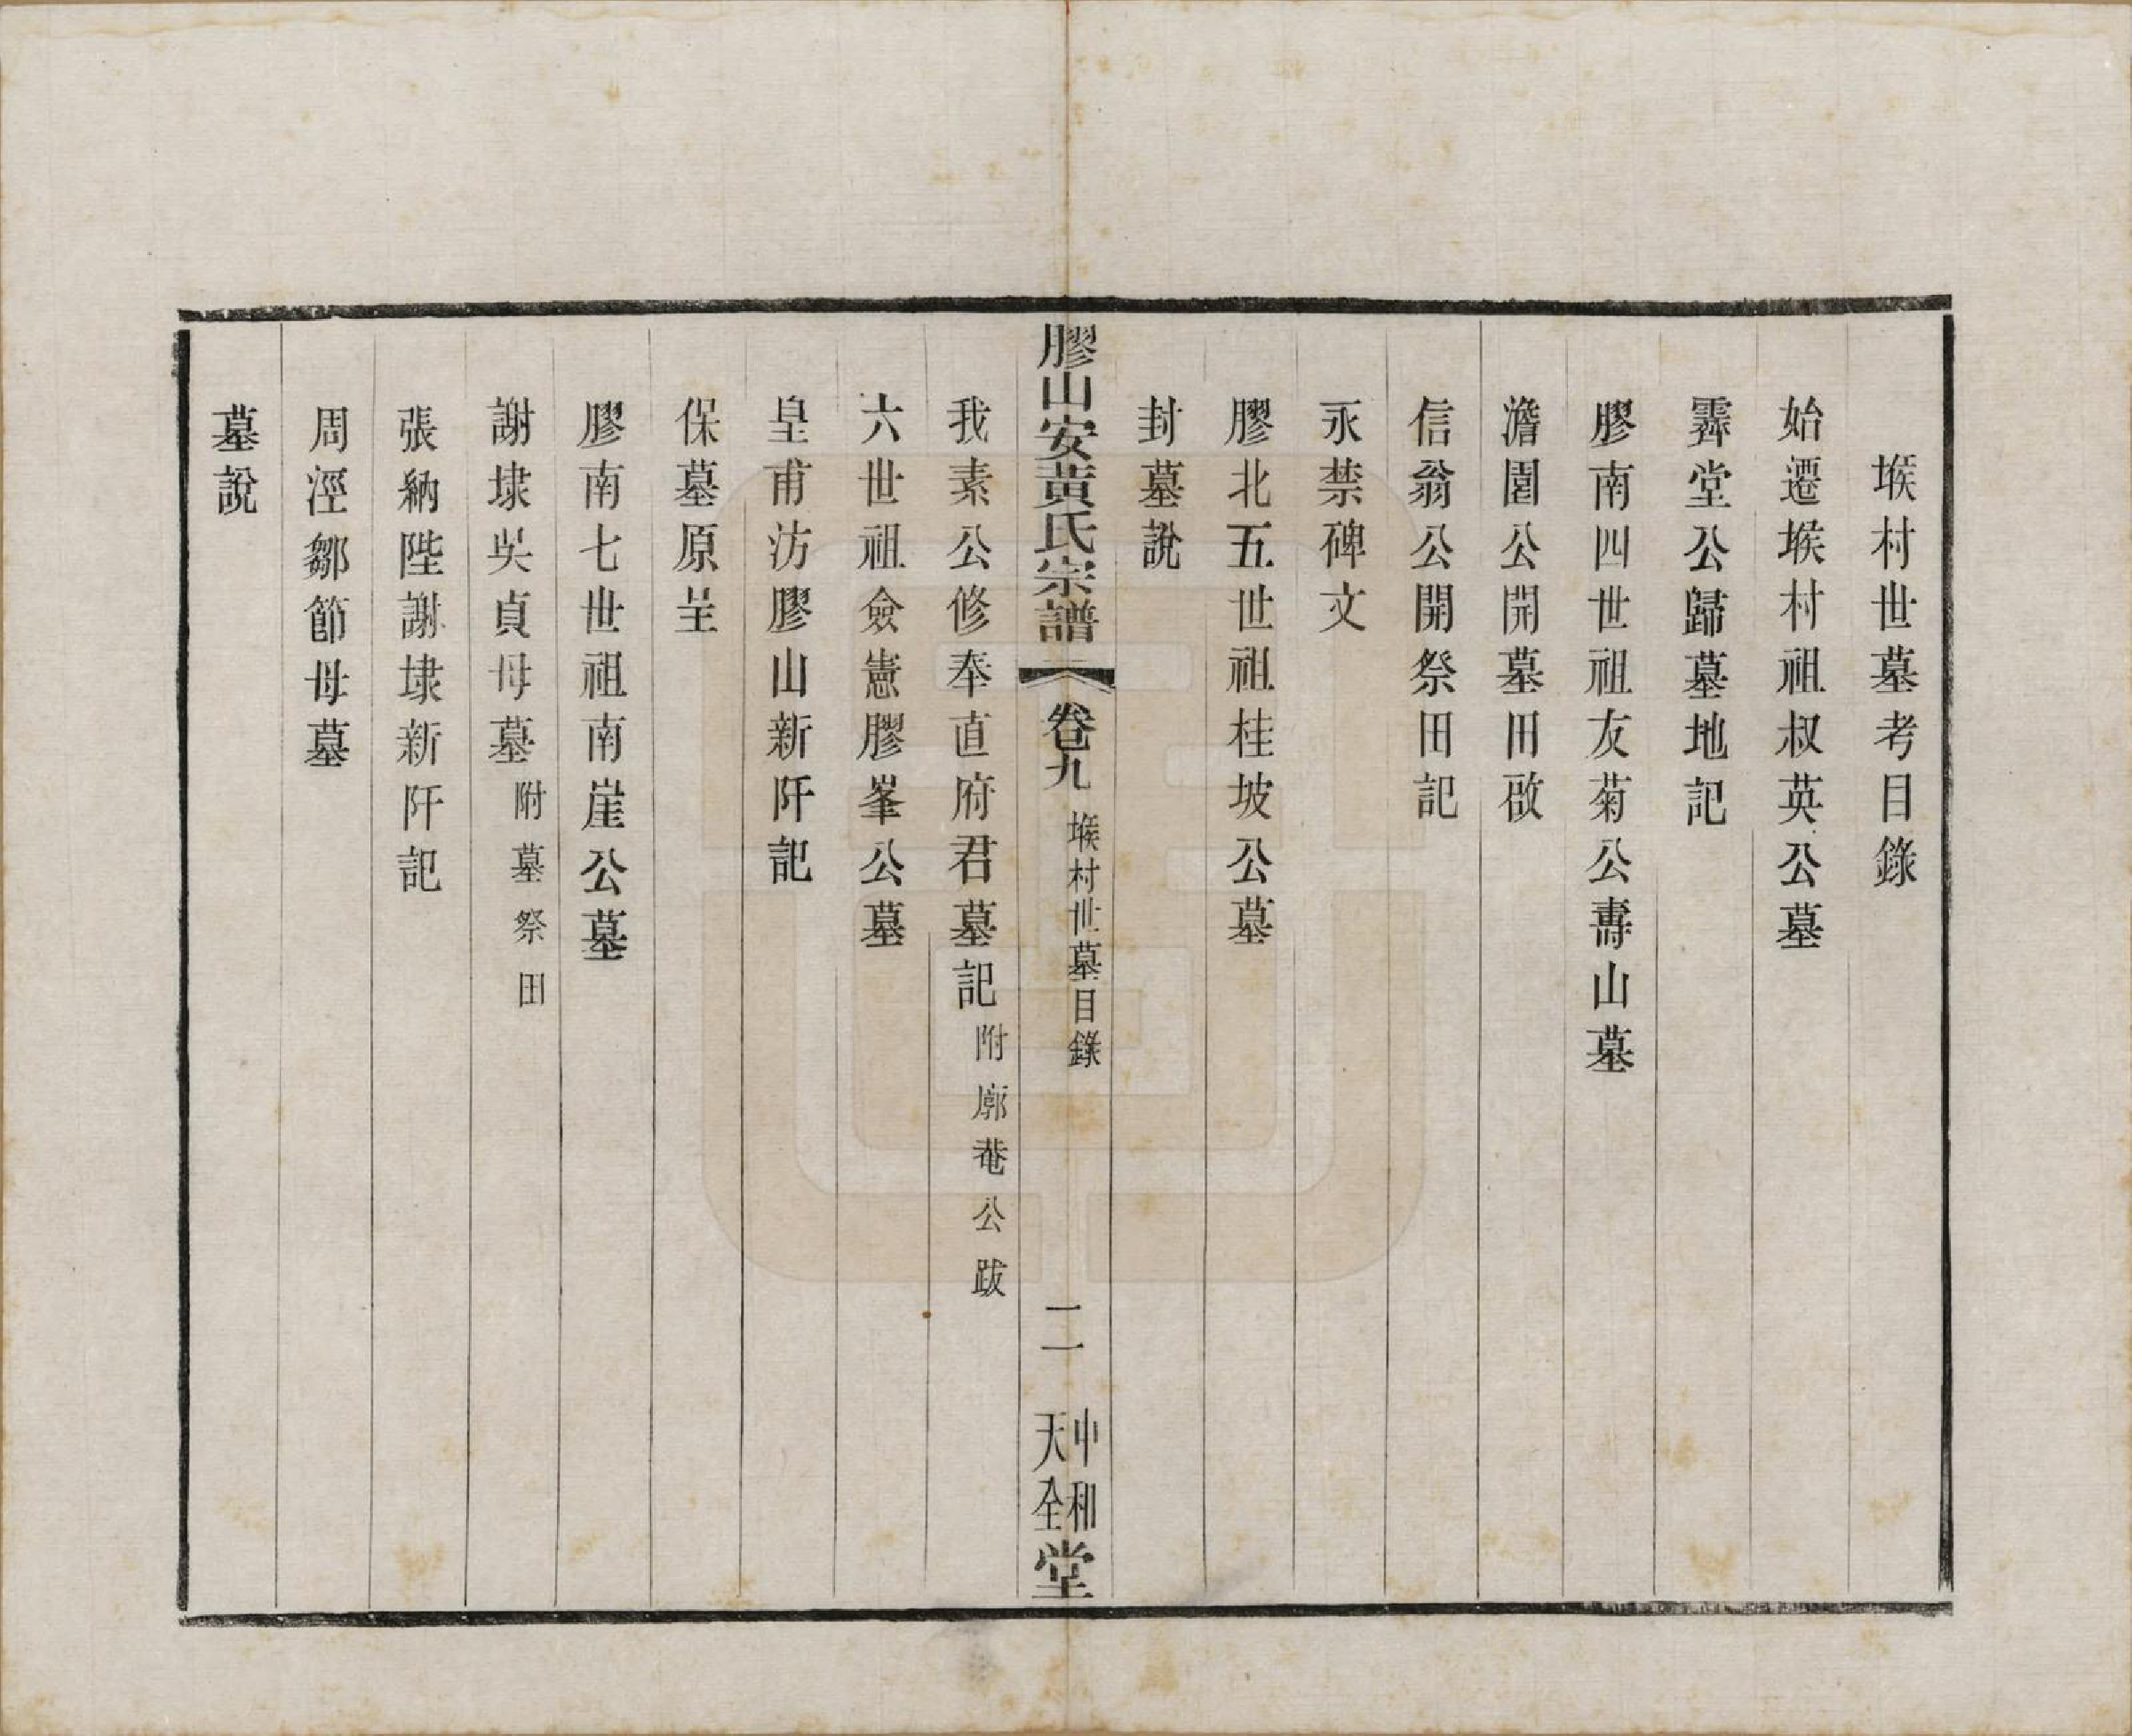 堠村世墓考目錄
始遷堠村祖叔英公墓
霽堂公歸墓地記
膠南四世祖友菊公壽山墓
澹園公開墓田啟
信翁公開祭田記
永禁碑文
膠北五世祖桂坡公墓
封墓說
膠山安黃氏宗譜 卷九 堠村世墓目錄 二 中和天全堂
我素公修奉直府君墓記 附廓菴公跋
六世祖僉憲膠峯公墓
皇甫汸膠山新阡記
保墓原呈
膠南七世祖南崖公墓
謝埭吳貞母墓 附墓祭田
張納陛謝埭新阡記
周涇鄒節母墓
墓說